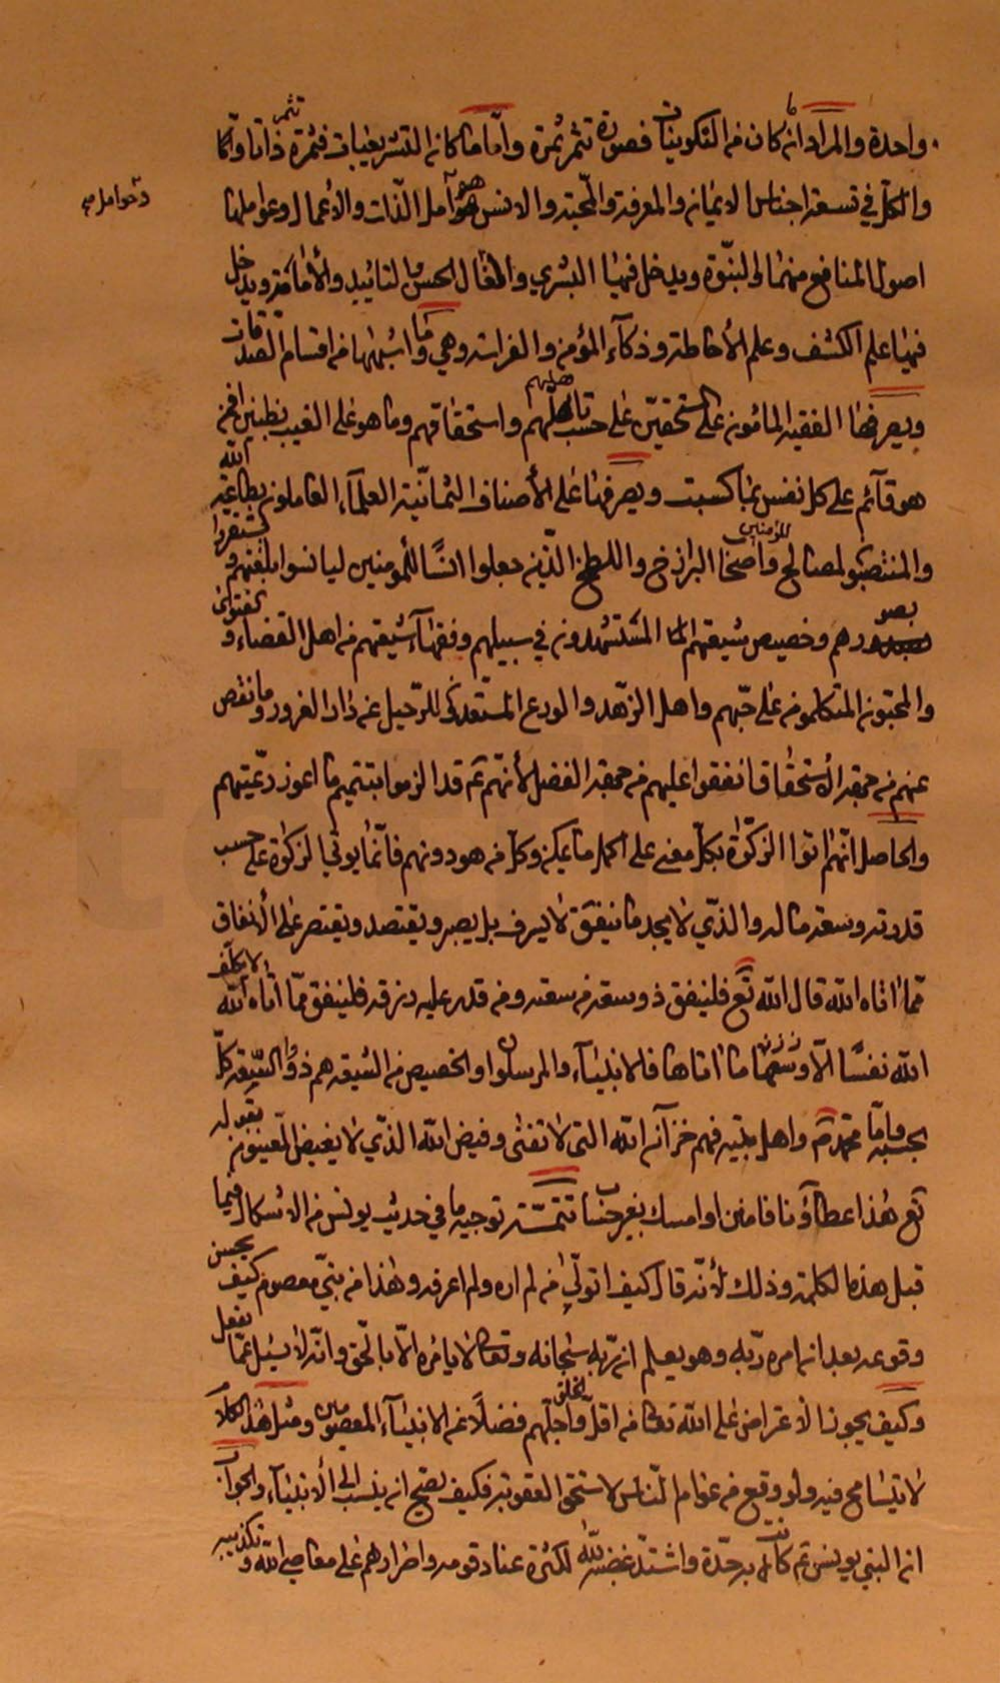 واحدة والمراد انه كان من التكوينات فصورة تثمر ثمرة واما ما كان من التشريعيات فثمرة ذاتا واكلا
والكل في تسعة اجناس الايمان والمعرفة والمحبة والانس هو آمل الذات والاعمال وعواملها
وحوامل
اصول المنافع منهما الى النبوة ويدخل فيها البشري والمقال الحسن والتاييد والامامة ويدخل
فيها علم الكشف وعلم الاحاطة وذكاء المؤمن والفراسة وهي وما اشبهها من اقسام الصدقات
ويعرفها الفقيه المأمون على المستحقين على حسب تاهلهم واستحقاقهم وما هو على الغيب بظنين افمن
هو قائم على كل نفس بما كسبت ويصرفها على الاصناف الثمانية العلماء العاملون بطاعة الله
والمنتصبون لمصالح المؤمنين واصحاب البرازخ واللطخ الذين جعلوا انسا للمؤمنين ليانسوا بلغتهم و
بصورهم وخصيص شيعتهم المستشهدون في سبيلهم وفقهاء شيعتهم من اهل القضاء و الفتوى
والمحبون المتكلمون على حبهم واهل الزهد والورع المستعدون للرحيل عن دار الغرور وما نقص
عنهم من جهة الاستحقاق انفقوا عليهم من جهة الفضل لانهم ع قد الزموا بتتميم ما اعوز رعيتهم
والحاصل انهم اتوا الزكوة بكل معنى على اكمل ما يمكن وكل من هو دونهم فانما يوتي الزكوة على حسب
قدرته وسعة ماله والذي لا يجد ما ينفق لا يسرف بل يصبر ويقتصد ويقتصر على الانفاق
مما اتاه الله قال الله تع فلينفق ذو سعة من سعته ومن قدر عليه رزقه فلينفق مما اتاه الله لا يكلف
الله نفسا الا وسعها ما اتاها فالانبياء والمرسلون والخصيص من الشيعة هم ذووا السعة كل
بحسبه واما محمد ص واهل بيته فهم خزائن الله التي لا تفنى وفيض الله الذي لا يغيض المعنيون بقوله
تع هذا عطاؤنا فامنن او امسك بغير حساب تتمة توجيه ما في حديث يونس من الاشكال فيما
قبل هذه الكلمة وذلك لانه قال كيف اتولى من لم اره ولم اعرفه وهذا من نبي معصوم كيف يحسن
وقوعه بعد ان امره ربه وهو يعلم ان ربه سبحانه وتعالى لا يامره الا بالحق وانه لا يسئل عما يفعل
وكيف يجوز الاعتراض على الله تعالى من اقل الخلق واجلهم فضلا عن الانبياء المعصومين ومثل هذا الكلام
لا يتسامح فيه ولو وقع من عوام الناس لاستحق العقوبة فكيف يصح ان ينسب الى الانبياء والجواب
ان النبي يونس ع كانت به حدة واشتد غضبه لله لكثرة عناد قومه واصرارهم على معاصي الله وتكذيبه